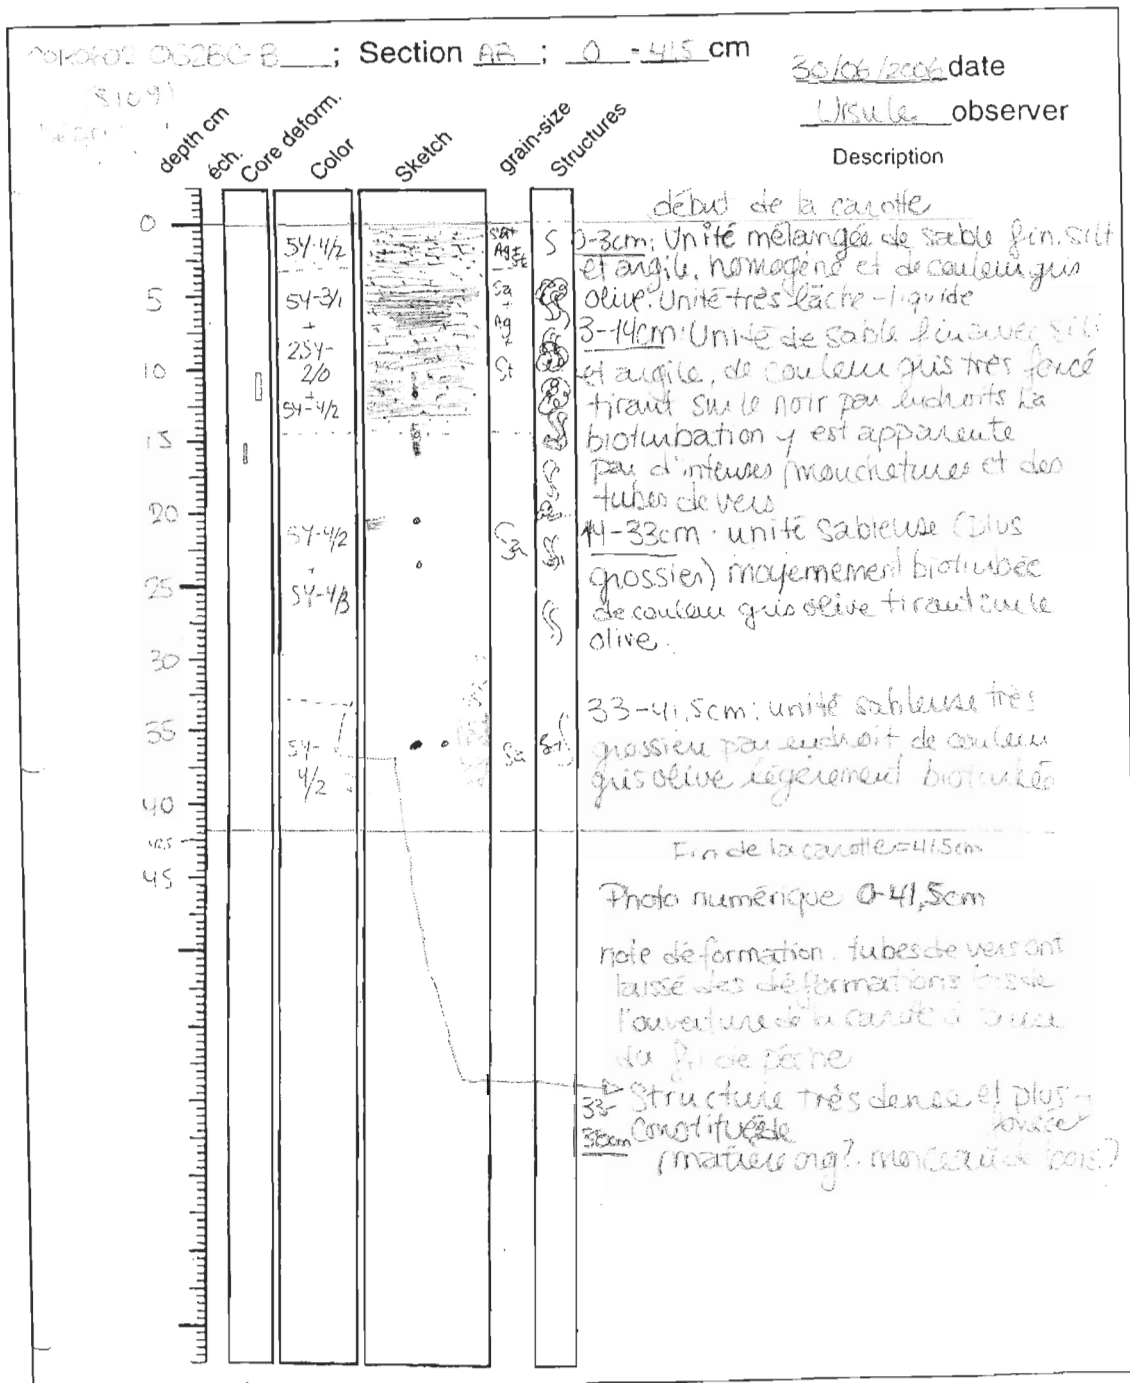 Section AB ; 0 - 41.5 cm
30/06/2006 date
Ursule observer
depth cm
éch.
Core deform.
Color
Sketch
grain-size
Structures
Description
début de la carotte
0
5
10
15
20
25
30
35
40
41.5
45
5Y-4/2
5Y-3/1
+
2.5Y-
2/0
+
5Y-4/2
5Y-4/2
+
5Y-4/3
5Y-
4/2
Sa+
Ag+
St
Sa
+
Ag
+
St
Sa
Sa
S
0-3cm: Unité mélangée de sable fin, silt
et argile, homogène et de couleur gris
olive. Unité très lâche - liquide
3-14cm: Unité de sable fin avec silt
et argile, de couleur gris très foncé
tirant sur le noir par endroits. La
bioturbation y est apparente
par d'intenses mouchetures et des
tubes de vers
14-33cm: unité sableuse (plus
grossier) moyennement bioturbée
de couleur gris olive tirant sur le
olive.
33-41,5cm: unité sableuse très
grossière par endroit, de couleur
gris olive légèrement bioturbée
Fin de la carotte=41.5cm
Photo numérique 0-41,5cm
note déformation: tubes de vers ont
laissé des déformations lors de
l'ouverture de la carotte à cause
du fil de pêche
Structure très dense et plus
foncée
33-
38cm constituée de
matière org? morceau de bois?